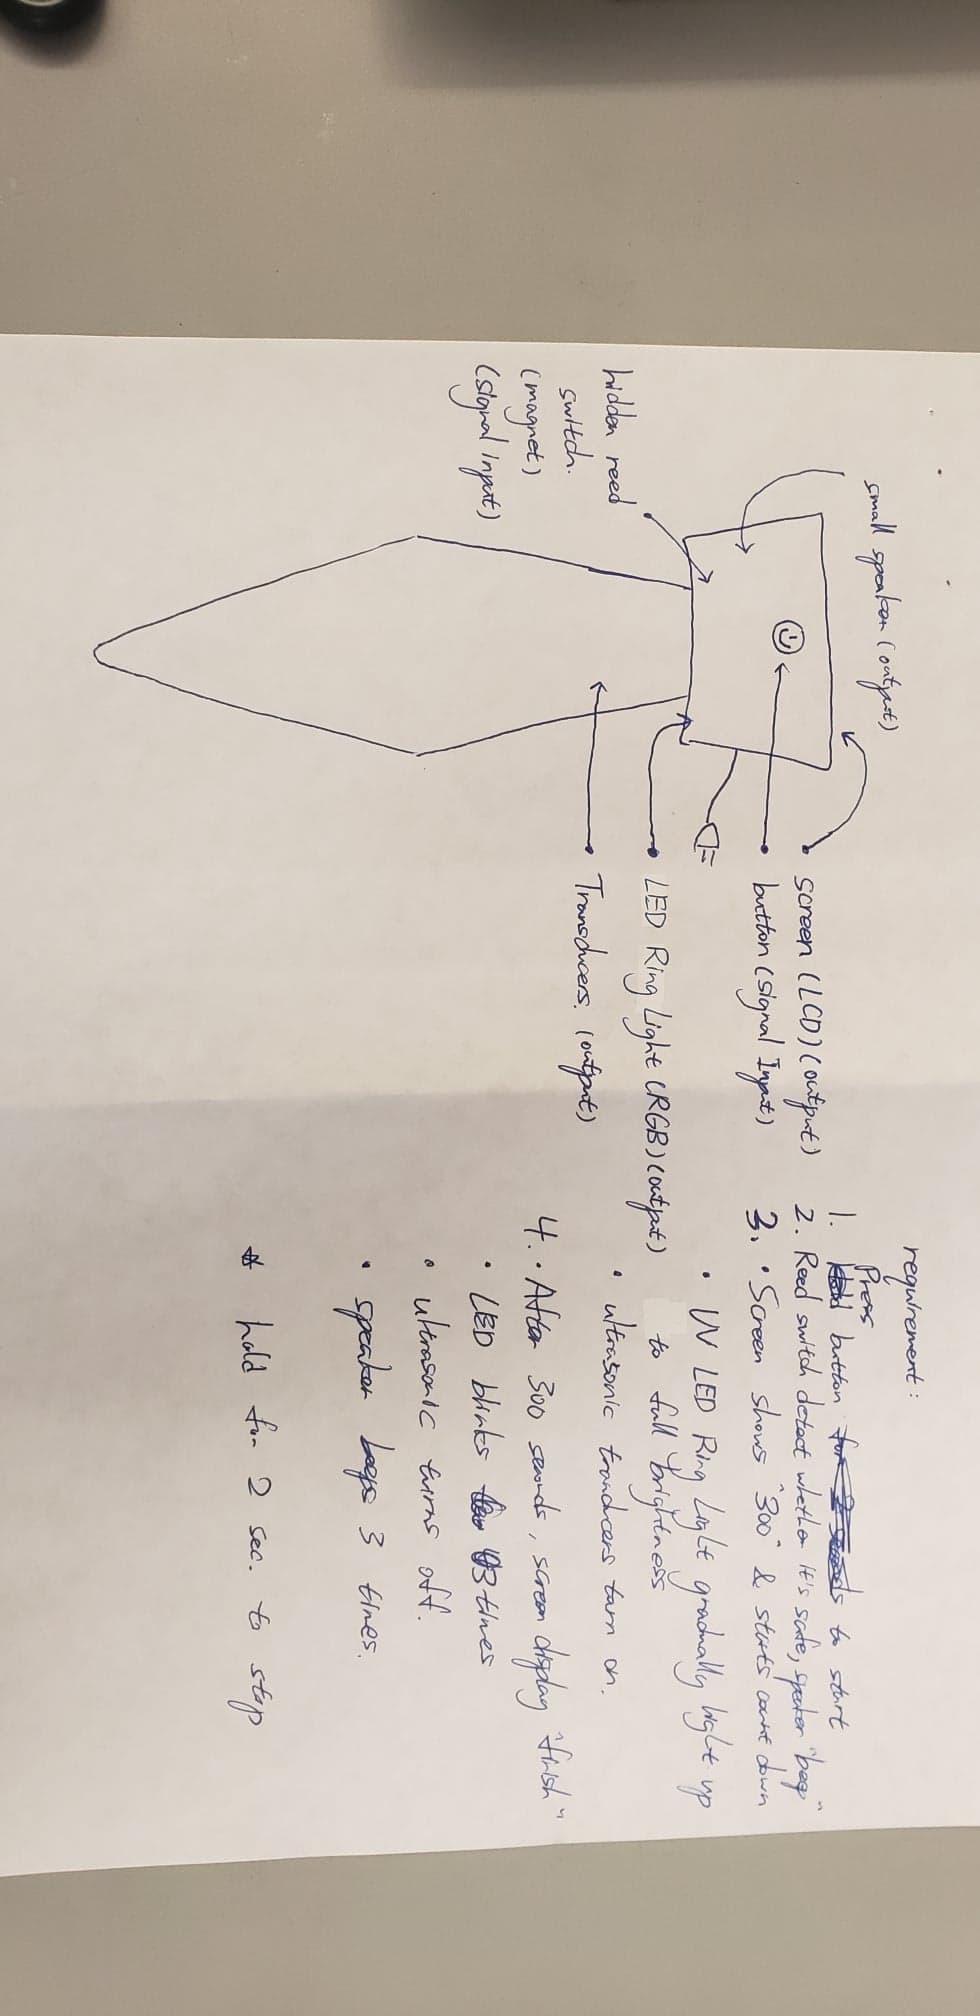 small speaker (output)
screen (LCD) (output)
button (signal Input)
LED Ring Light (RGB) (output)
hidden reed
switch.
(magnet)
(signal input)
Transducers. (output)
requirement:
Press
1. Hold button for 2 seconds to start
2. Reed switch detect whether it's safe, speaker "beep"
3. • Screen shows "300" & starts count down
• UV LED Ring Light gradually light up
to full brightness
• ultrasonic tranducers turn on.
4. • After 300 seconds, screen display "finish"
• LED blinks 3 times
• ultrasonic turns off.
• speaker beeps 3 times.
* hold for 2 sec. to stop